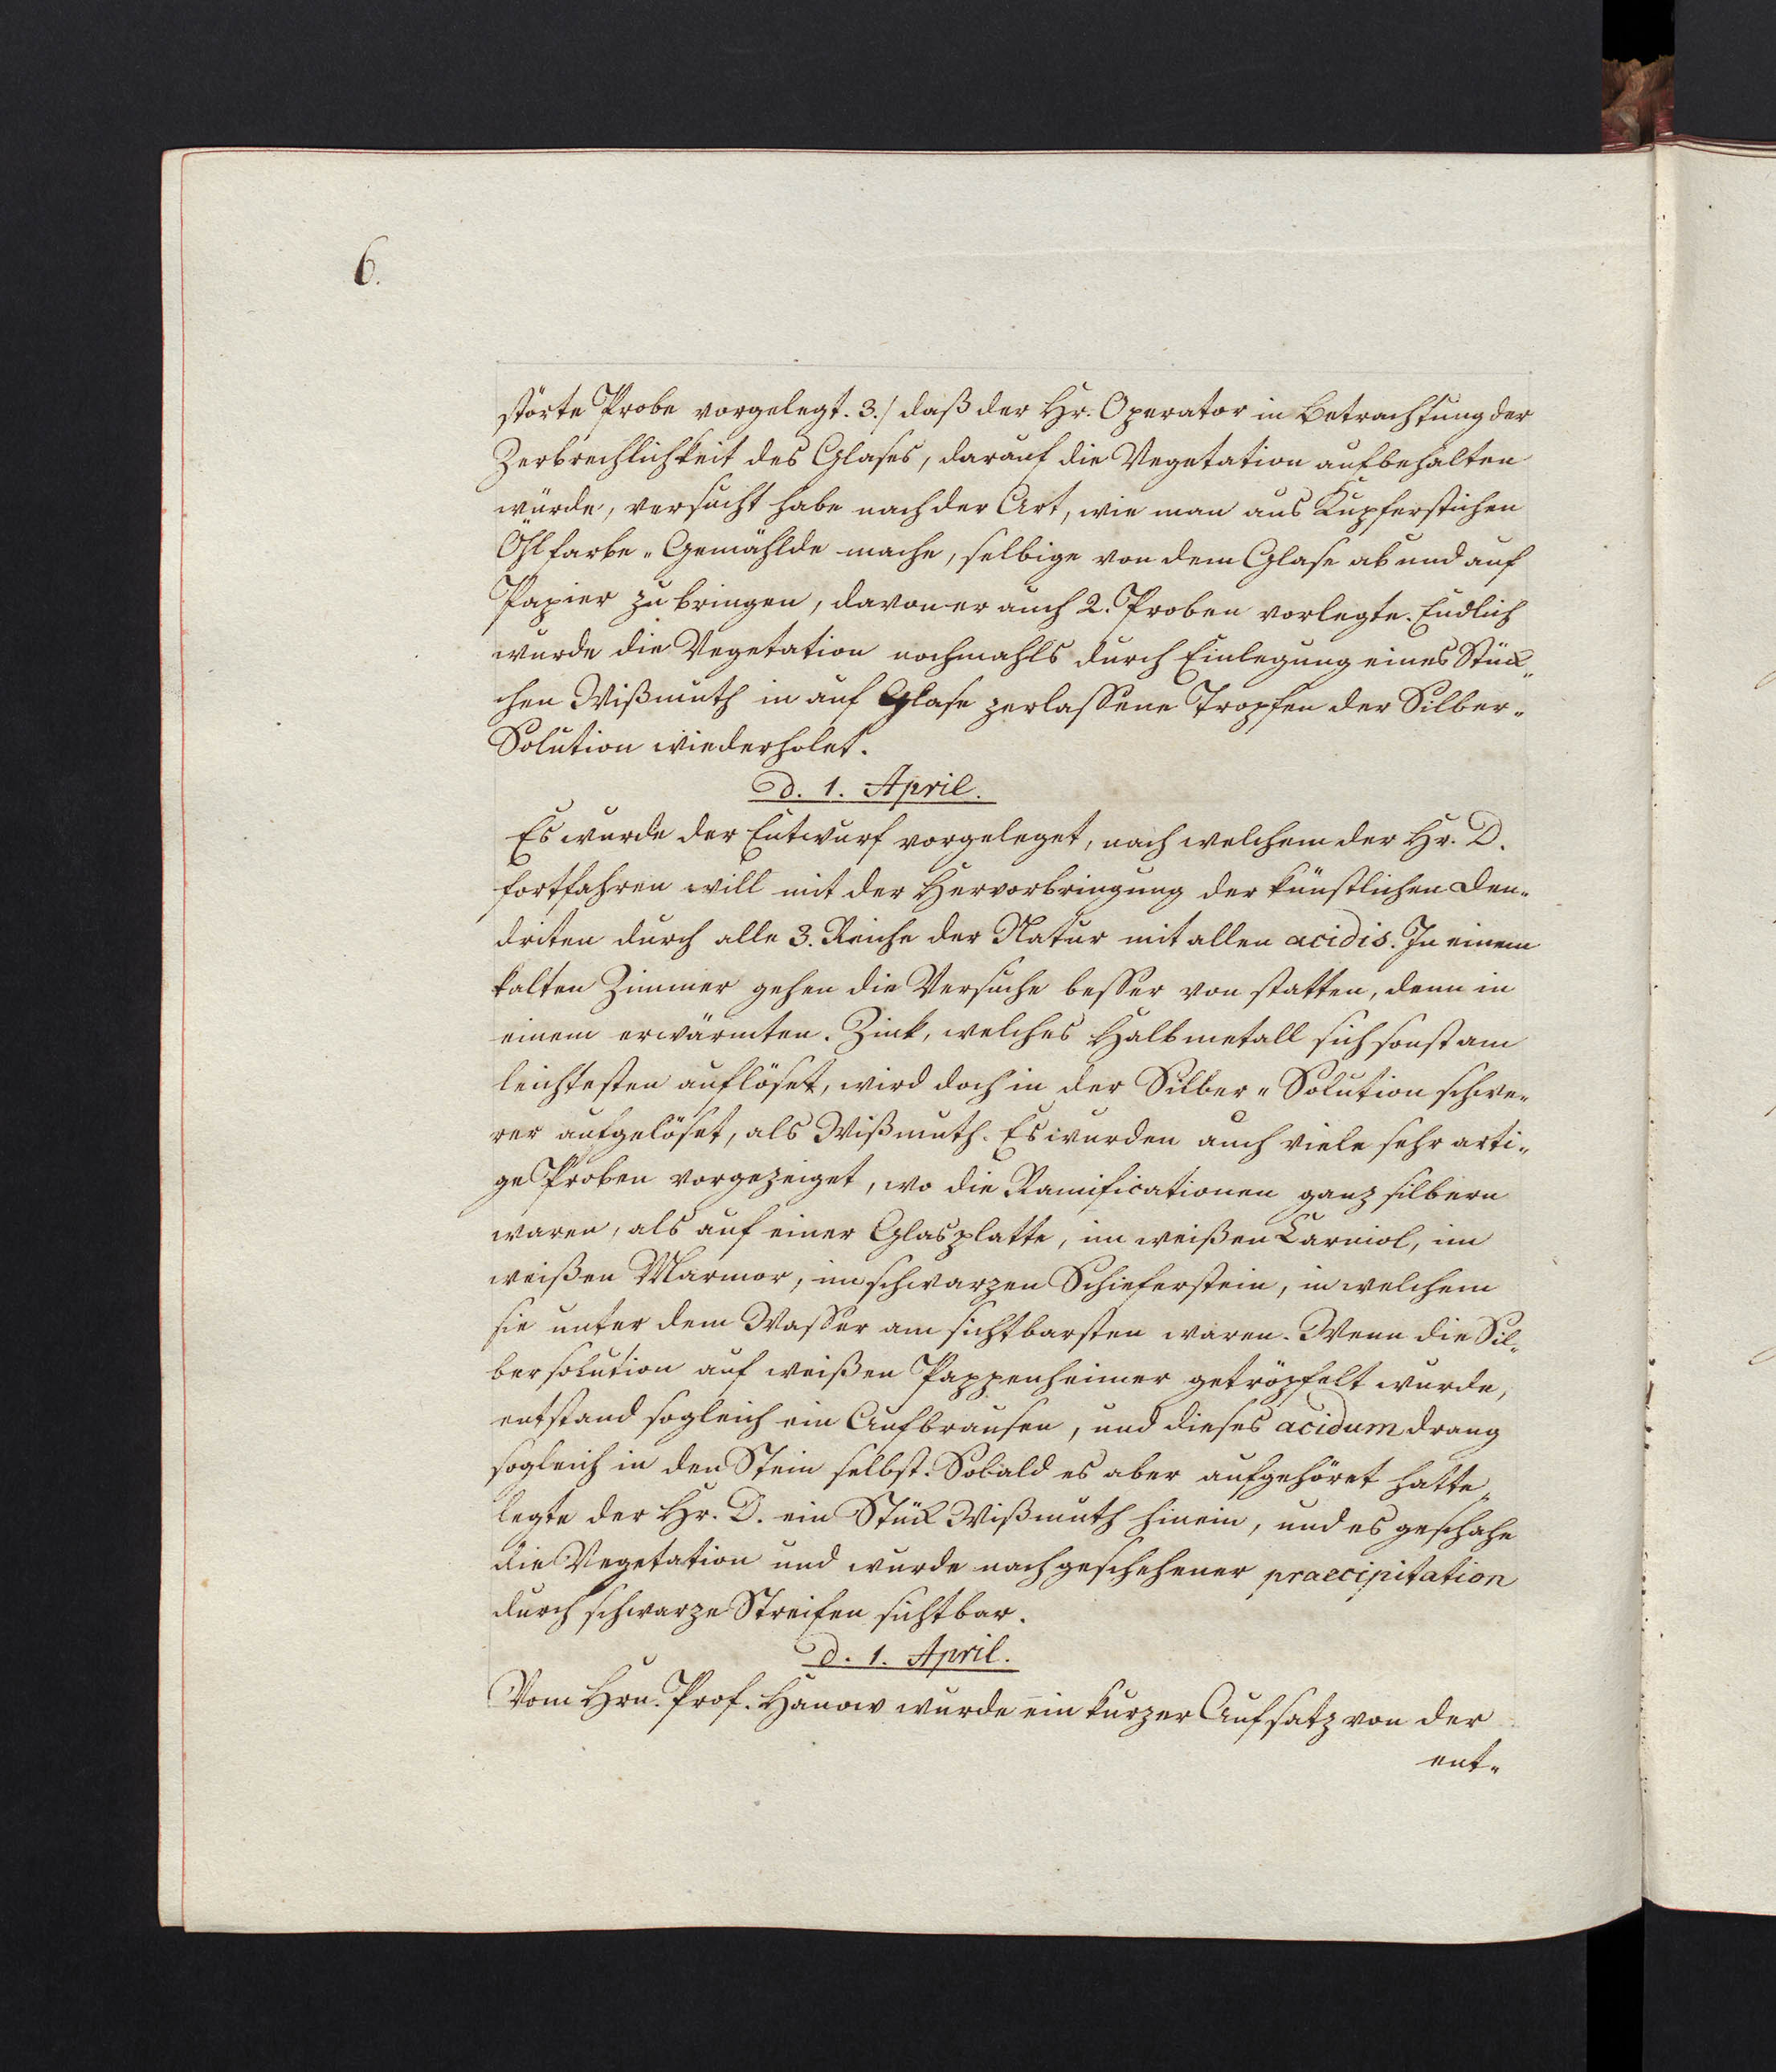 6.
störte Probe vorgelegt. 3./ daß der Hr. Operator in Betrachtung der
Zerbrechlichkeit des Glases, darauf die Vegetation aufbehalten
würde, versucht habe nach der Art, wie man aus Kupferstichen
Öhlfarbe-Gemählde mache, selbige von dem Glase ab und auf
Papier zu bringen, davon er auch 2. Proben vorlegte. Endlich
wurde die Vegetation nochmahls durch Einlegung eines Stük-
chen Wißmuth in auf Glase zerlassene Tropfen der Silber-
Solution wiederholet.
d. 1. April.
Es wurde der Entwurf vorgeleget, nach welchem der Hr. D.
fortfahren will mit der Hervorbringung der künstlichen Den-
driten durch alle 3. Reiche der Natur mit allen acidis. In einem
kalten Zimmer gehen die Versuche besser von statten, denn in
einem erwärmten. Zink, welches Halbmetall sich sonst am
leichtesten auflöset, wird doch in der Silber-Solution schwe-
rer aufgelöset, als Wißmuth. Es wurden auch viele sehr arti-
ge Proben vorgezeiget, wo die Ramificationen ganz silbern
waren, als auf einer Glasplatte, im weißen Carniol, im
weißen Marmor, im schwarzen Schieferstein, in welchem
sie unter dem Wasser am sichtbarsten waren. Wenn die Sil-
bersolution auf weißen Pappenheimer getröpfelt wurde,
entstand sogleich ein Aufbrausen, und dieses acidum drang
sogleich in den Stein selbst. Sobald es aber aufgehöret hatte,
legte der Hr. D. ein Stük Wißmuth hinein, und es geschahe
die Vegetation und wurde nach geschehener praecipitation
durch schwarze Streifen sichtbar.
d. 1. April.
Vom Hrn. Prof. Hanow wurde ein kurzer Aufsatz von der
ent-